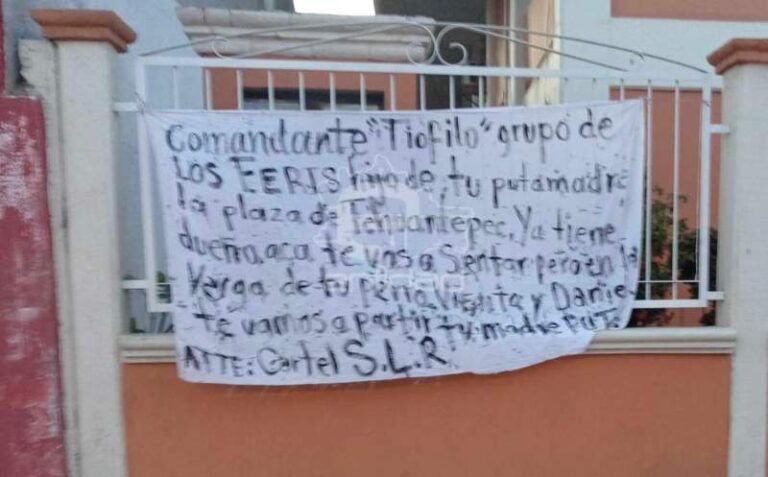 Comandante "Tiofilo" grupo de
LOS EERIS hijo de tu puta madre
la plaza de Tehuantepec, Ya tiene
dueño, aca te vas a Sentar pero en la
Verga de tu perro, y Danie
te vamos a partir tu madre PUT
ATTE: Cartel S.L.R.